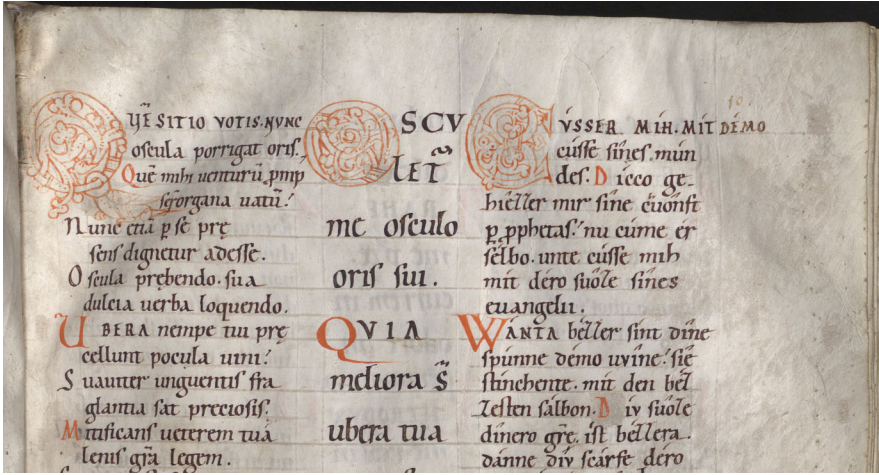 QVE̅ SITIO VOTIS. NVNC
oscula porrigat oris.
Que̅ mihi uenturu̅ ꝓmiſ
ser̅ organa uatu̅!
Nunc etia̅ ꝑ se prę
sens dignetur adesse.
Oscula prębendo. sua
dulcia uerba loquendo.
UBERA nempe tui prę
cellunt pocula uini!
Suauiter unguentis fra
glantia sat preciosis.
Mitificans ueterem tua̅
lenis gr̅a legem.
OSCV
LET̃
me osculo
oris sui.
QVIA
meliora s̃
ubera tua
CVSSER MIH. MIT DÉMO
cússe sînes. mun
des. Dicco ge-
hiézzer mir sîne cuónft
ꝑ ꝓphetas! nu cúme ér
sélbo. unte cússe mih
mit déro suôze sînes
euangelii.
WÁNTA bézzer sint dîne
spúnne démo uvîne! siê
stínchente. mit den béz
zesten sálbon. Div suôze
dînero gr̅e. ist bézzera.
dánne dív scárfe déro